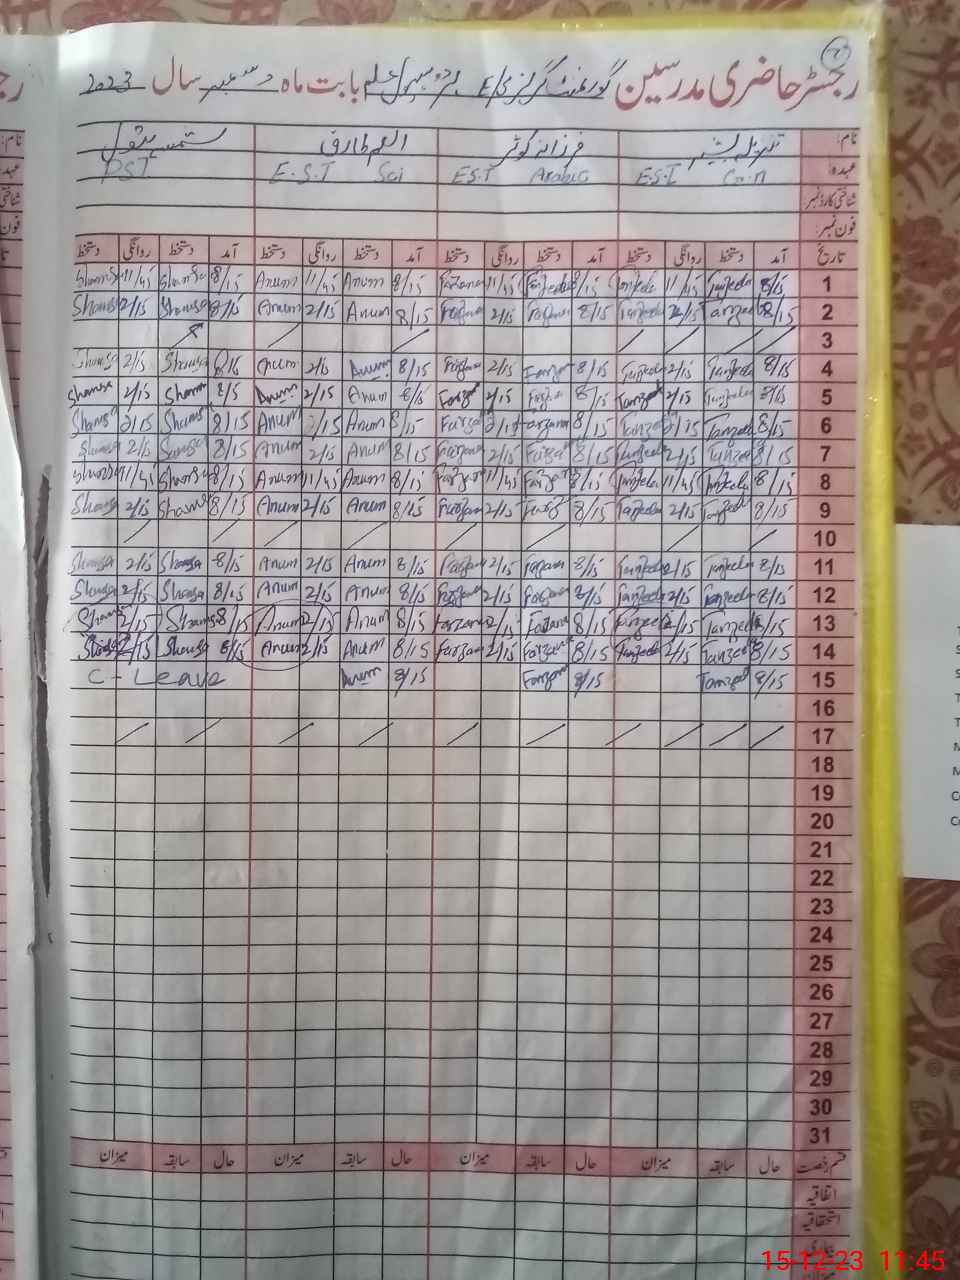 رجسٹر حاضری مدرسین گورنمنٹ گرلز بابت ماہ دسمبر سال 2023
نام: فرزانہ کوثر
عہدہ: E.S.T Arabic E.S.T Sci PST
شناختی کارڈ نمبر:
فون نمبر:
تاریخ آمد دستخط روانگی دستخط آمد دستخط روانگی دستخط آمد دستخط روانگی دستخط آمد دستخط روانگی دستخط
1 8/15 Tanzeela 11/45 Tanzeela 8/15 Farzana 11/45 Farzana 8/15 Anum 11/45 Anum 8/15 Shamsa 11/45 Shamsa
2 8/15 Tanzeela 2/15 Tanzeela 8/15 Farzana 2/15 Farzana 8/15 Anum 2/15 Anum 8/15 Shamsa 2/15 Shamsa
3
4 8/15 Tanzeela 2/15 Tanzeela 8/15 Farzana 2/15 Farzana 8/15 Anum 2/15 Anum 8/15 Shamsa 2/15 Shamsa
5 8/15 Tanzeela 2/15 Tanzeela 8/15 Farzana 2/15 Farzana 8/15 Anum 2/15 Anum 8/15 Shamsa 2/15 Shamsa
6 8/15 Tanzeela 2/15 Tanzeela 8/15 Farzana 2/15 Farzana 8/15 Anum 2/15 Anum 8/15 Shamsa 2/15 Shamsa
7 8/15 Tanzeela 2/15 Tanzeela 8/15 Farzana 2/15 Farzana 8/15 Anum 2/15 Anum 8/15 Shamsa 2/15 Shamsa
8 8/15 Tanzeela 11/45 Tanzeela 8/15 Farzana 11/45 Farzana 8/15 Anum 11/45 Anum 8/15 Shamsa 11/45 Shamsa
9 8/15 Tanzeela 2/15 Tanzeela 8/15 Farzana 2/15 Farzana 8/15 Anum 2/15 Anum 8/15 Shamsa 2/15 Shamsa
10
11 8/15 Tanzeela 2/15 Tanzeela 8/15 Farzana 2/15 Farzana 8/15 Anum 2/15 Anum 8/15 Shamsa 2/15 Shamsa
12 8/15 Tanzeela 2/15 Tanzeela 8/15 Farzana 2/15 Farzana 8/15 Anum 2/15 Anum 8/15 Shamsa 2/15 Shamsa
13 8/15 Tanzeela 2/15 Tanzeela 8/15 Farzana 2/15 Farzana 8/15 Anum 2/15 Anum 8/15 Shamsa 2/15 Shamsa
14 8/15 Tanzeela 2/15 Tanzeela 8/15 Farzana 2/15 Farzana 8/15 Anum 2/15 Anum 8/15 Shamsa 2/15 Shamsa
15 8/15 Tanzeel 8/15 Farzana 8/15 Anum C - Leave
16
17
18
19
20
21
22
23
24
25
26
27
28
29
30
31
قسم رخصت حال سابقہ میزان حال سابقہ میزان حال سابقہ میزان حال سابقہ میزان
اتفاقیہ
استحقاقیہ
15-12-23 11:45